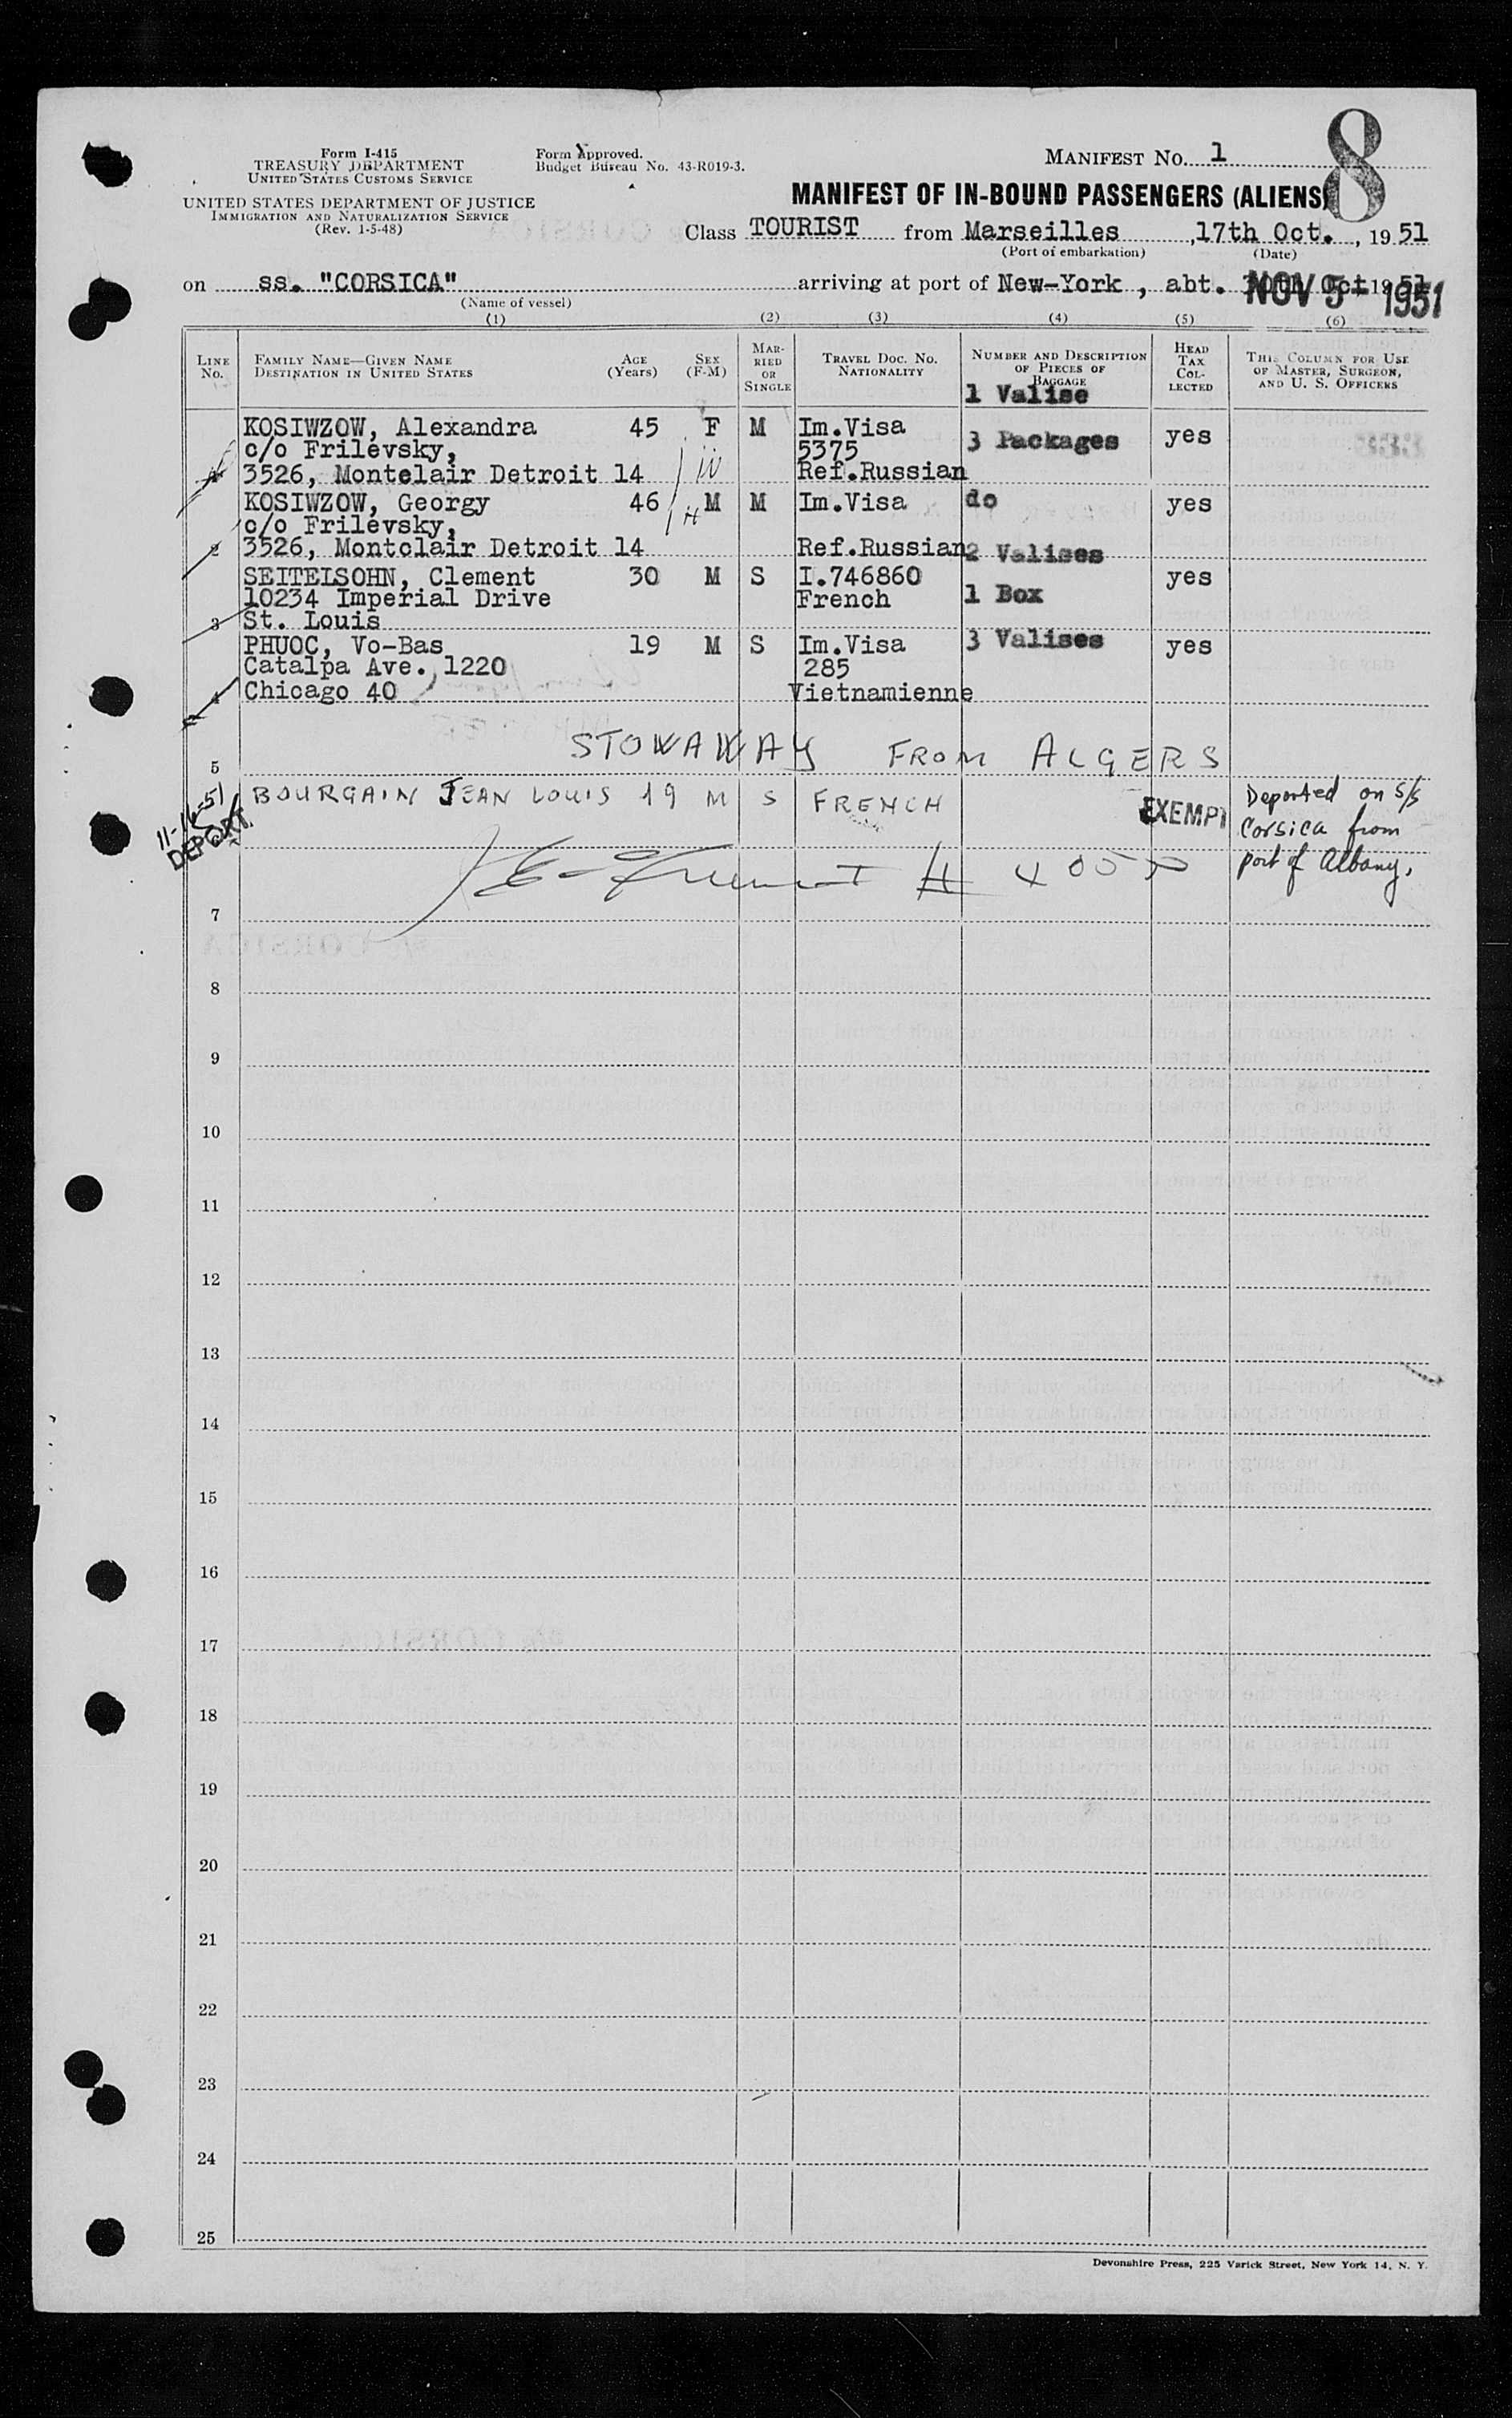 8
Form I-415
TREASURY DEPARTMENT
UNITED STATES CUSTOMS SERVICE
UNITED STATES DEPARTMENT OF JUSTICE
IMMIGRATION AND NATURALIZATION SERVICE
(Rev. 1-5-48)
Form Approved.
Budget Bureau No. 43-R019-3.
MANIFEST NO. 1
MANIFEST OF IN-BOUND PASSENGERS (ALIENS)
Class TOURIST from Marseilles, 17th Oct., 1951
(Port of embarkation) (Date)
on ss. "CORSICA" arriving at port of New-York, abt. Oct 1951
NOV 5- 1951
(Name of vessel)
(1) (2) (3) (4) (5) (6)
LINE NO.
FAMILY NAME—GIVEN NAME
DESTINATION IN UNITED STATES
AGE (Years)
SEX (F-M)
MARRIED OR SINGLE
TRAVEL DOC. NO.
NATIONALITY
NUMBER AND DESCRIPTION OF PIECES OF BAGGAGE
HEAD TAX COLLECTED
THIS COLUMN FOR USE OF MASTER, SURGEON, AND U. S. OFFICERS
1 Valise
KOSIWZOW, Alexandra 45 F M Im.Visa 3 Packages yes
c/o Frilevsky, 5375
3526, Montclair Detroit 14 Ref.Russian
KOSIWZOW, Georgy 46 M M Im.Visa do yes
c/o Frilevsky,
2 3526, Montclair Detroit 14 Ref.Russian 2 Valises
SEITELSOHN, Clement 30 M S I.746860 yes
10234 Imperial Drive French 1 Box
3 St. Louis
PHUOC, Vo-Bas 19 M S Im.Visa 3 Valises yes
Catalpa Ave. 1220 285
4 Chicago 40 Vietnamienne
STOWAWAY FROM ALGERS
5
11-16-51
DEPORT.
BOURGAIN JEAN LOUIS 19 M S FRENCH EXEMPT
Deported on S/S
Corsica from
port of Albany.
7
8
9
10
11
12
13
14
15
16
17
18
19
20
21
22
23
24
25
Devonshire Press, 225 Varick Street, New York 14, N. Y.